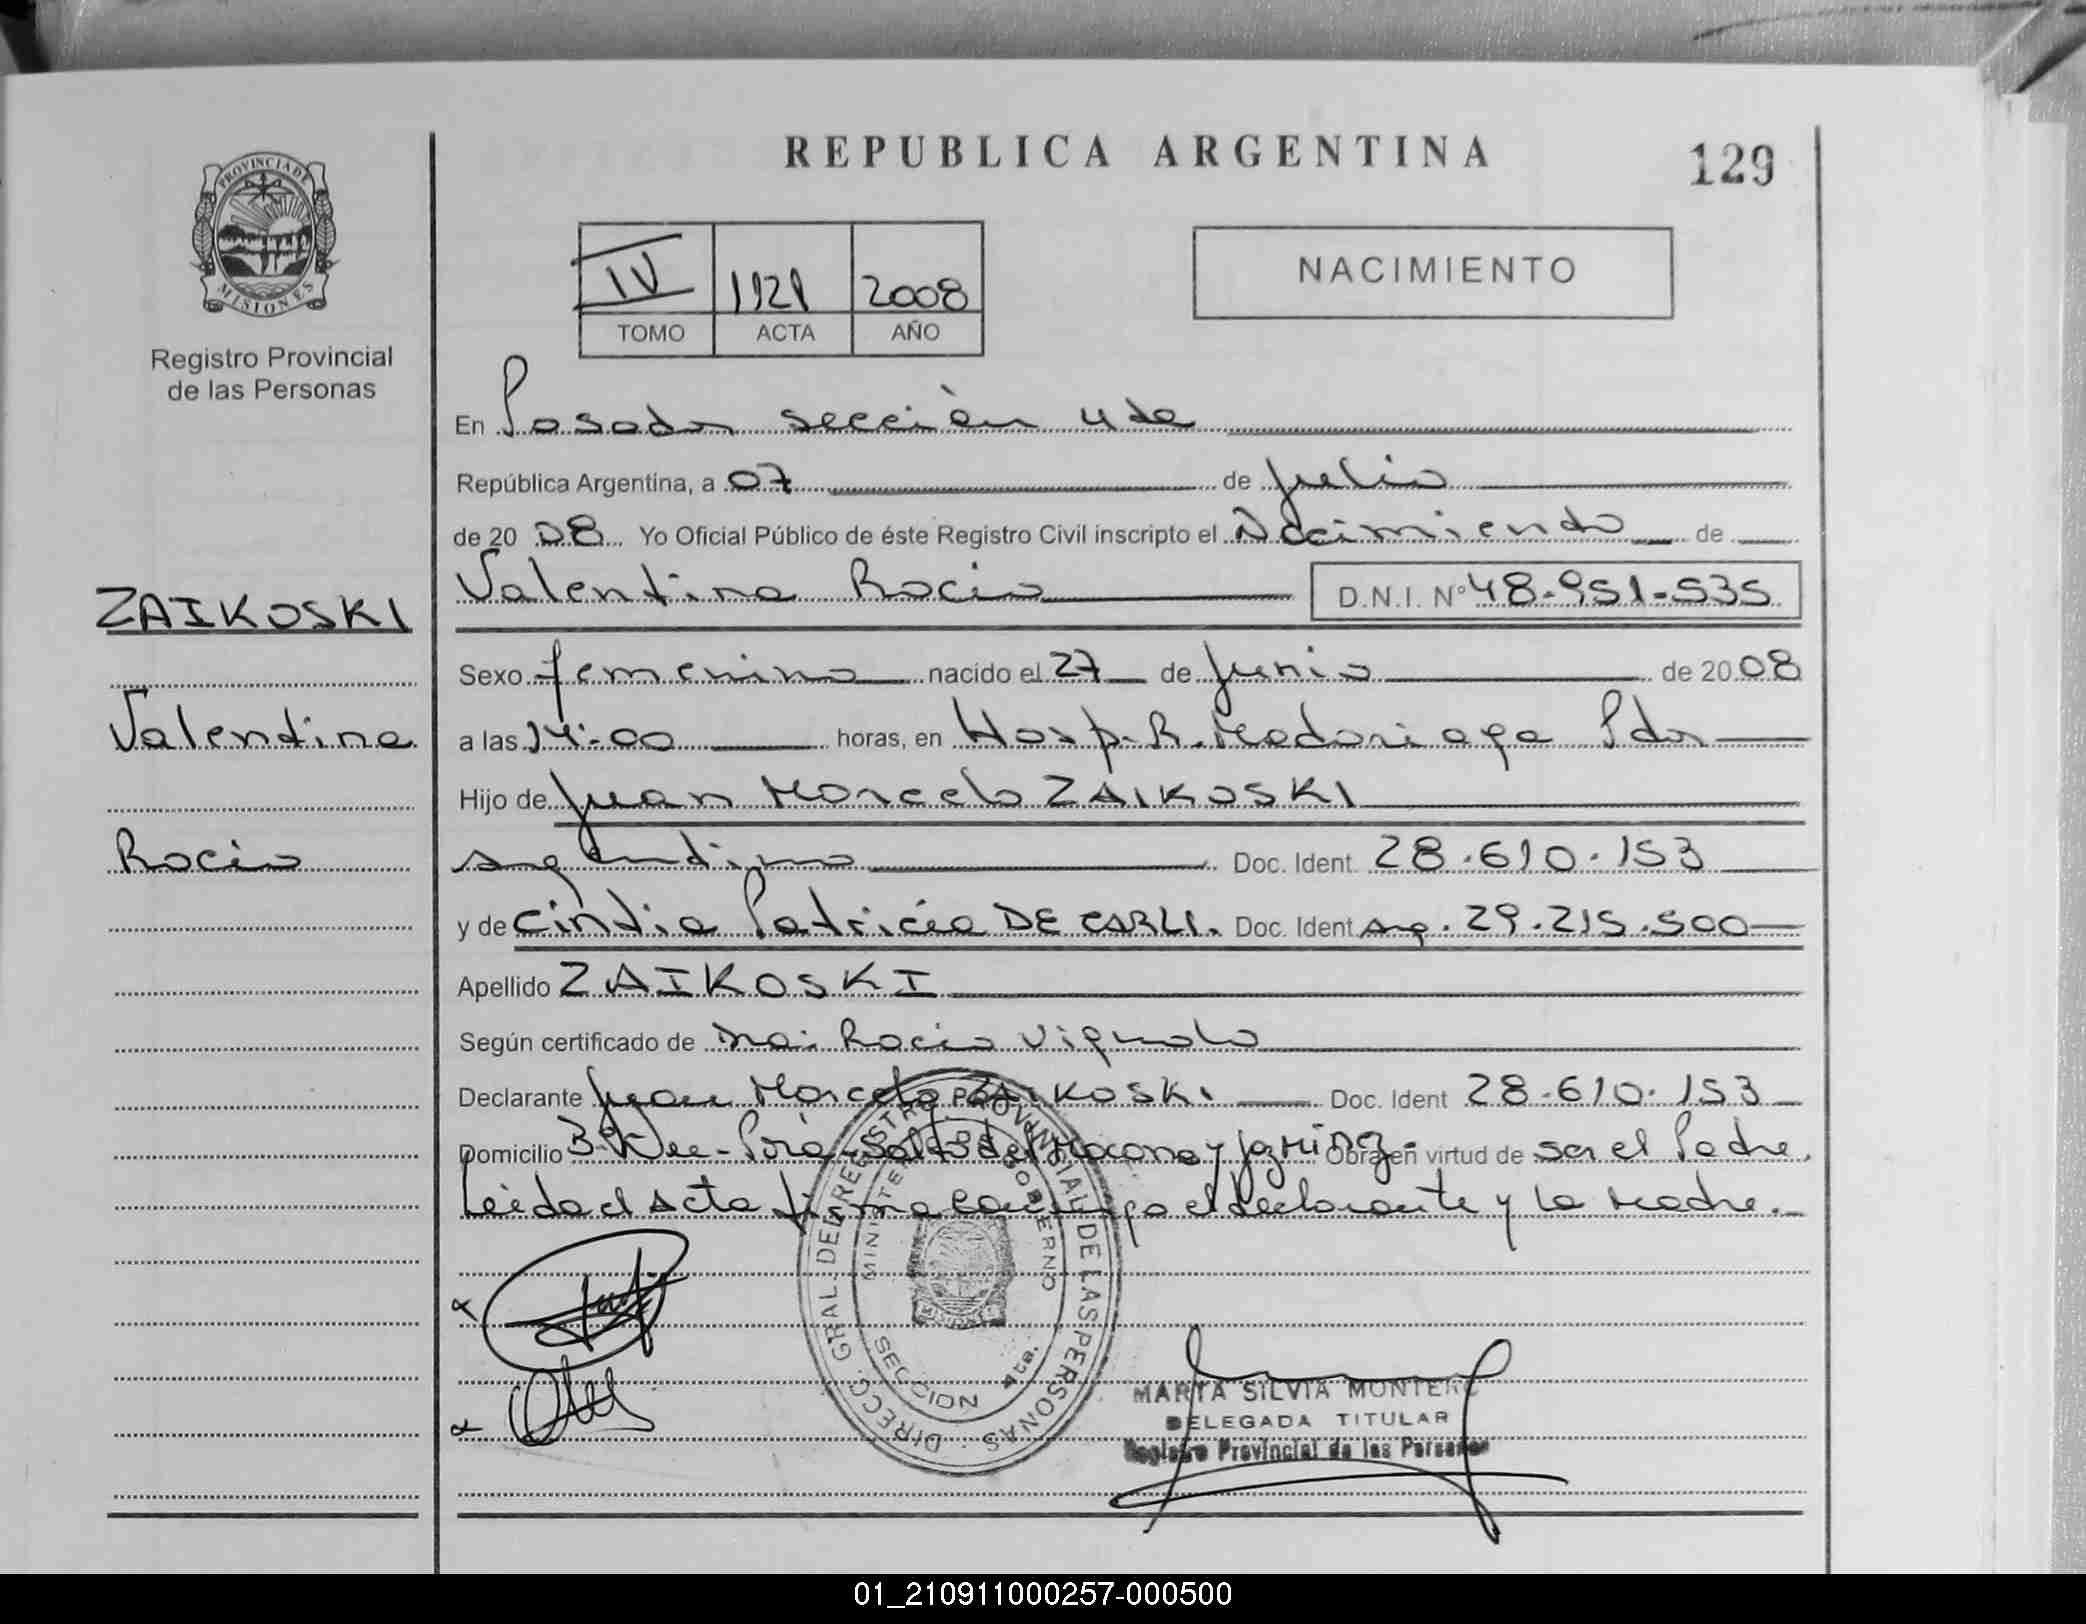 REPUBLICA ARGENTINA
129
PROVINCIA DE
MISIONES
Registro Provincial
de las Personas
IV 1121 2008
TOMO ACTA AÑO
NACIMIENTO
En Posadas sección 4ta
República Argentina, a 07 de julio
de 20 08 Yo Oficial Público de éste Registro Civil inscripto el Nacimiento de
Valentina Rocio D.N.I. Nº 48.951.535
ZAIKOSKI
Valentina
Rocio
Sexo femenino nacido el 27 de Junio de 20 08
a las 14:00 horas, en Hosp. R. Madariaga Pdas
Hijo de Juan Marcelo ZAIKOSKI
argentino Doc. Ident. 28.610.153
y de Cintia Patricia DE CARLI. Doc. Ident Arg. 29.215.500
Apellido ZAIKOSKI
Según certificado de Dra. Rocio Vignolo
Declarante Juan Marcelo ZAIKOSKI Doc. Ident 28.610.153
Domicilio Bº Porá Salto del Mocona y Jazmin Obra en virtud de ser el Padre.
Leida el Acta firma conmigo el declarante y la Madre.
DIRECC. GRAL. DEL REGISTRO PROVINCIAL DE LAS PERSONAS
MINISTERIO GOBIERNO
SECCION 4ta.
MARTA SILVIA MONTERO
DELEGADA TITULAR
Registro Provincial de las Personas
01_210911000257-000500